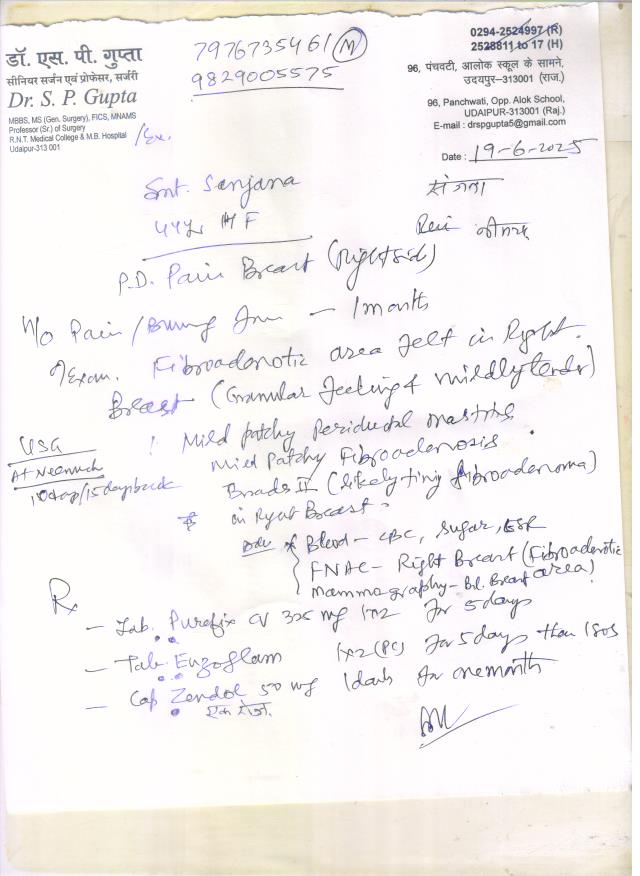 डॉ. एस. पी. गुप्ता
सीनियर सर्जन एवं प्रोफेसर, सर्जरी
Dr. S. P. Gupta
MBBS, MS (Gen. Surgery), FICS, MNAMS
Professor (Sr.) of Surgery
R.N.T. Medical College & M.B. Hospital /Ex.
Udaipur-313 001
7976735461 (M)
9829005575
0294-2524997 (R)
2528811 to 17 (H)
96, पंचवटी, आलोक स्कूल के सामने,
उदयपुर–313001 (राज.)
96, Panchwati, Opp. Alok School,
UDAIPUR-313001 (Raj.)
E-mail : drspgupta5@gmail.com
Date : 19-6-2025
Smt. Sanjana
F
P.D. Pain Breast (Right side)
H/o Pain / 1 month
Exam. Fibroadenotic area felt in Right
Breast (Granular feeling & mildly tender)
USG
At Neemuch
: Mild patchy Periductal mastitis
Mild Patchy Fibroadenosis
Birads II (likely tiny fibroadenoma)
in Right Breast
Adv Blood - CBC, Sugar, ESR
FNAC - Right Breast (Fibroadenotic area)
Mammography - Bil. Breast
Rx
- Tab. Purefix CV 325 mg 1x2 for 5 days
- Tab. Enzoflam 1x2 (PC) for 5 days than SOS
- Cap Zendol 50 mg 1 daily for one month
एक रोज